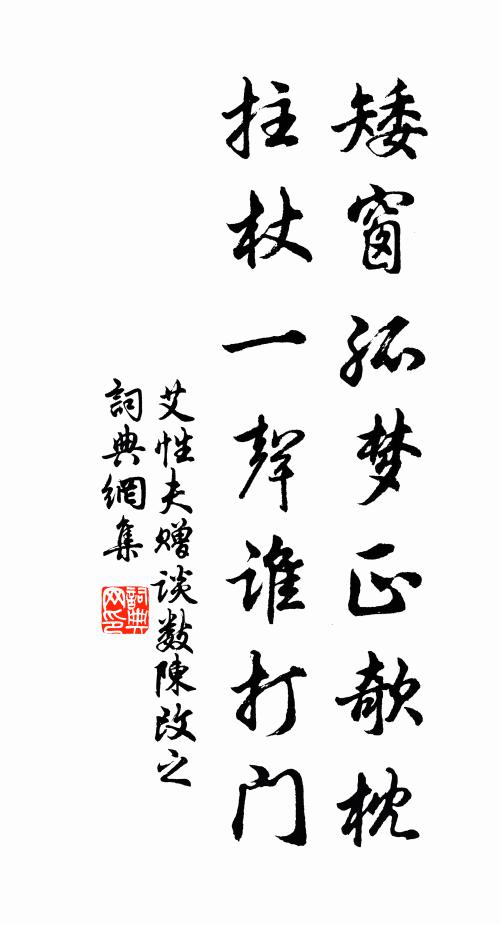 矮窗孤梦正欹枕
拄杖一聲誰打门
艾性夫赠谈数陳改之
詞典網集
詞典
网印